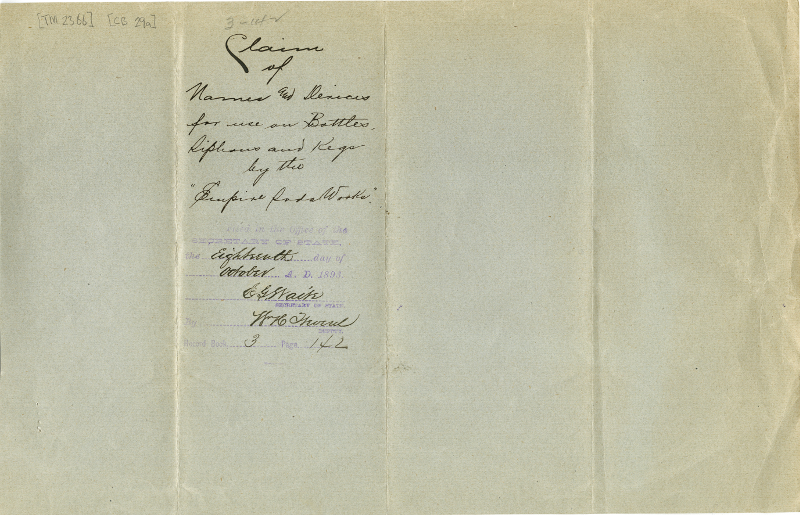 [TM 2366] [CB 29a]
3-142
Claim
of
Names and Devices
for use on Bottles,
Siphons and Kegs
by the
"Empire Soda Works".
Filed in the office of the
SECRETARY OF STATE,
the Eighteenth day of
October A. D. 1893.
E G Waite
SECRETARY OF STATE.
By Wm H
DEPUTY.
Record Book 3 Page 142